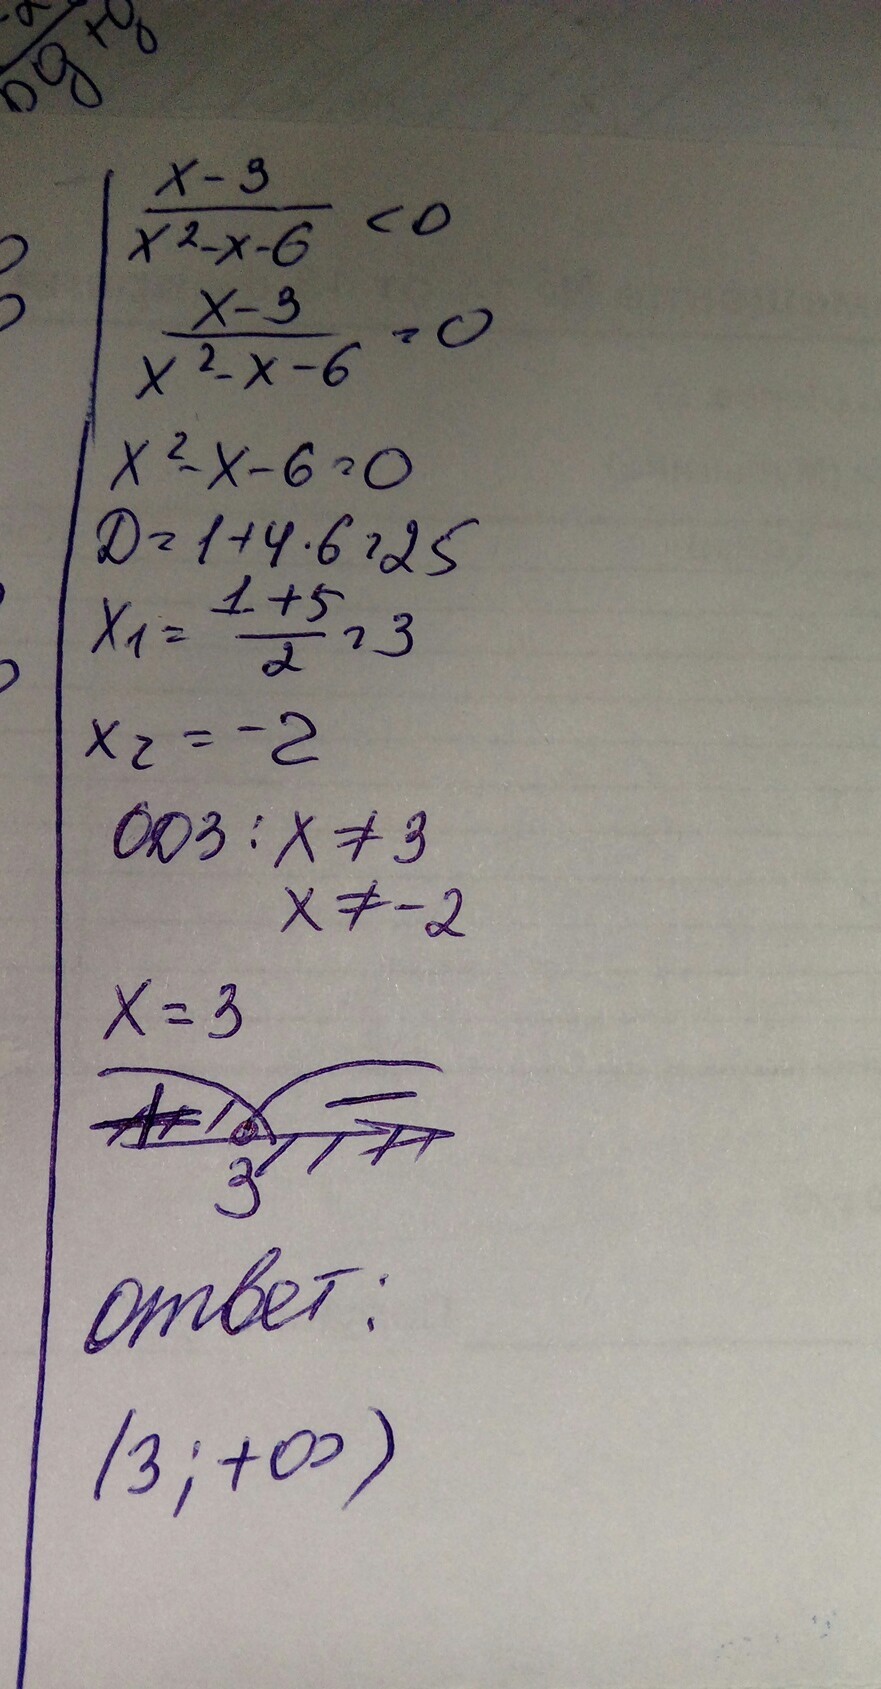 x-3
/
x²-x-6 <0
x-3
/
x²-x-6 =0
x²-x-6=0
D=1+4·6=25
x₁= (1+5)/2 =3
x₂ = -2
ОДЗ: x≠3
x≠-2
x=3
+ −
3
ответ:
(3;+∞)